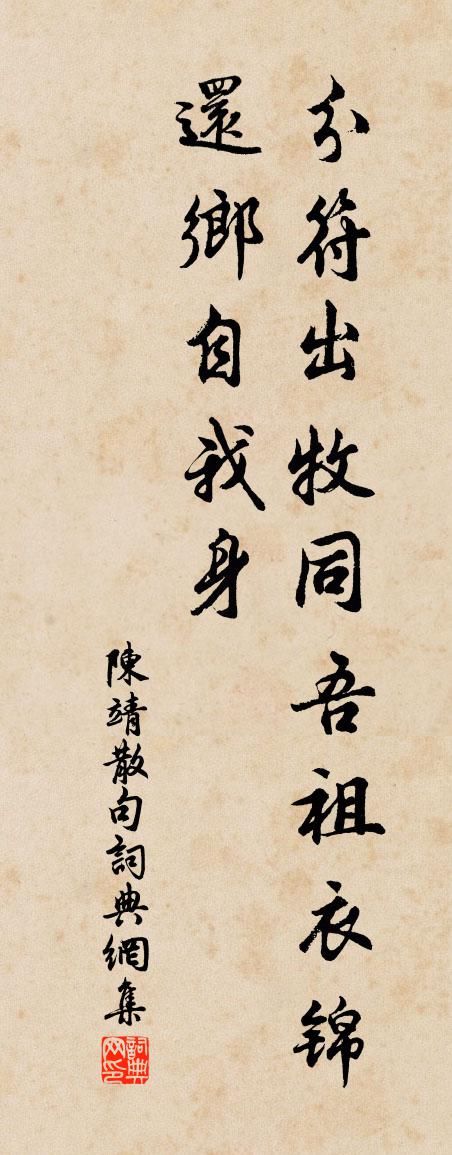 分符出牧同吾祖衣錦
還鄉自我身
陳靖散句詞典網集
詞典网印